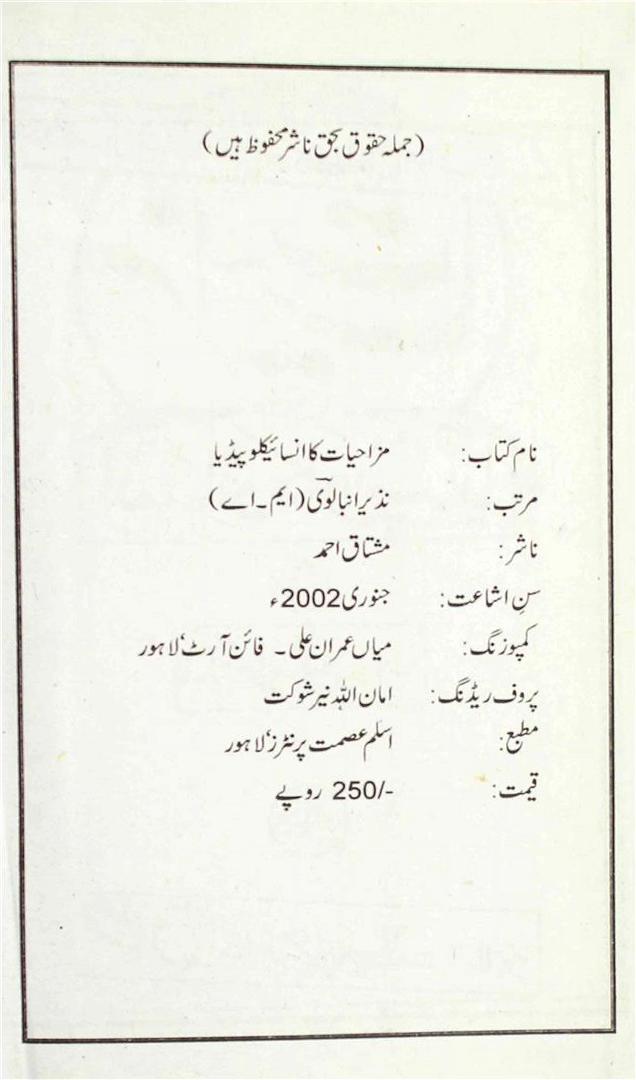 (جملہ حقوق بحق ناشر محفوظ ہیں)
نام کتاب: مزاحیات کا انسائیکلوپیڈیا
مرتب: نذیر انبالوی (ایم۔اے)
ناشر: مشتاق احمد
سنِ اشاعت: جنوری 2002ء
کمپوزنگ: میاں عمران علی۔ فائن آرٹ‘ لاہور
پروف ریڈنگ: امان اللہ نیر شوکت
مطبع: اسلم عصمت پرنٹرز‘ لاہور
قیمت: 250/- روپے